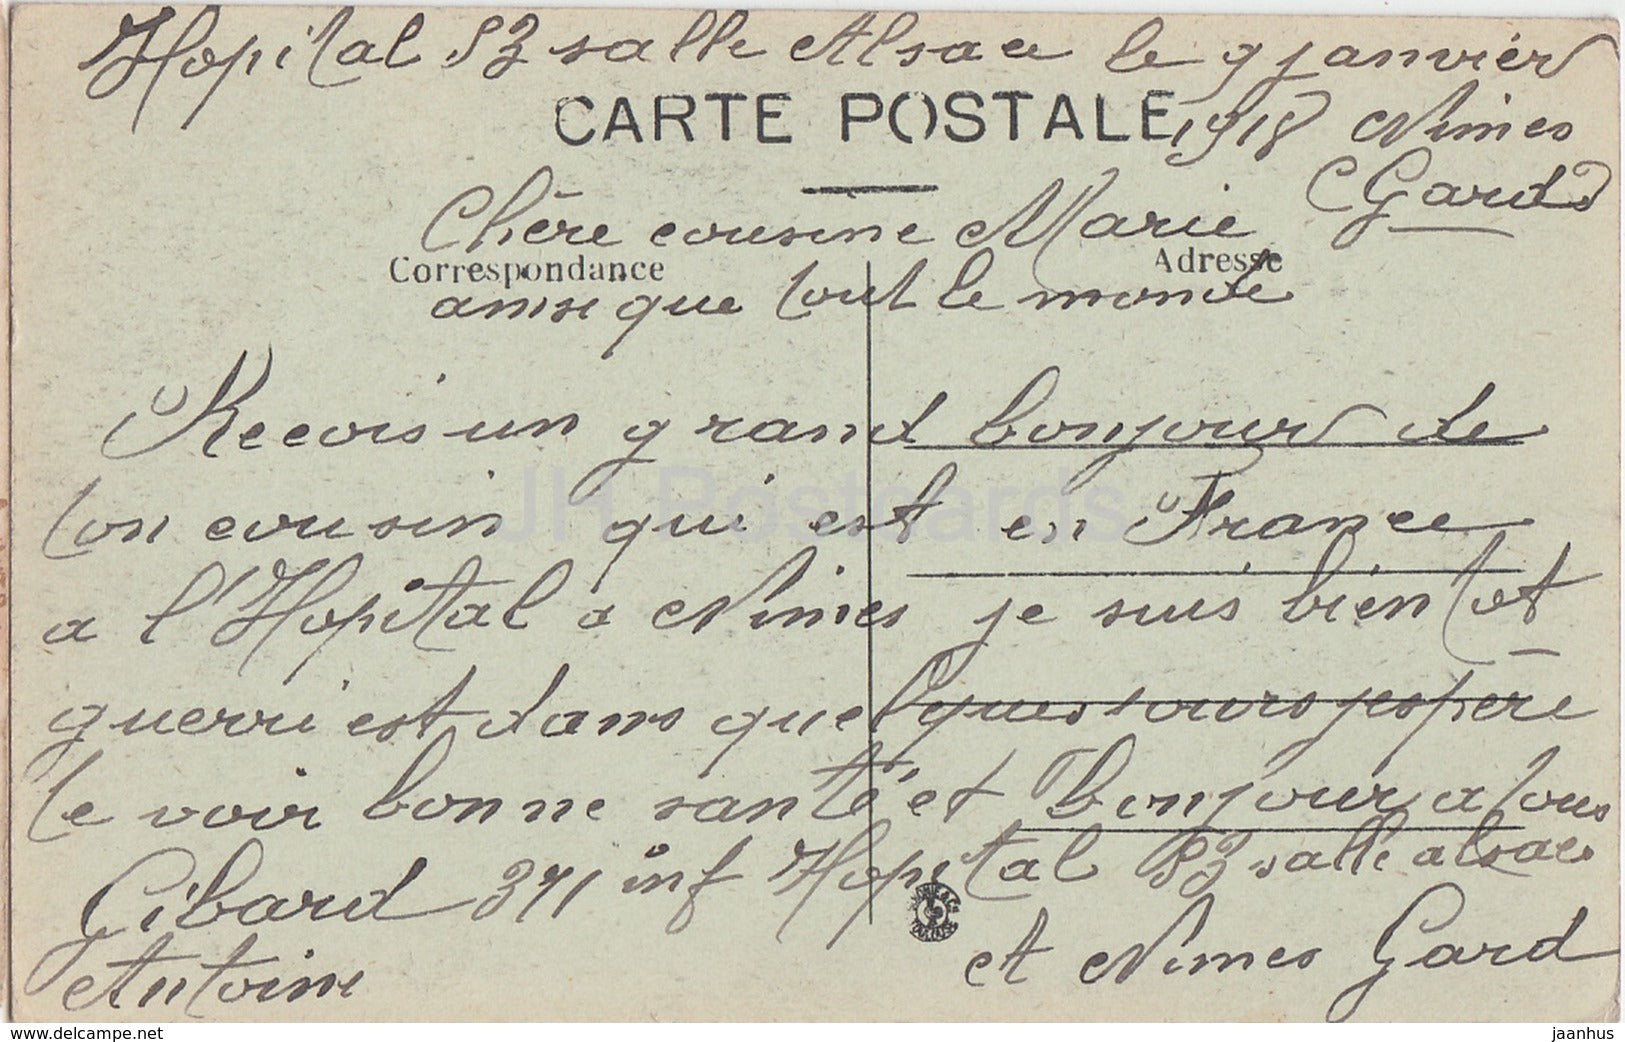 Hopital 83 salle Alsace le 9 janvier
CARTE POSTALE
1918 Nimes
(Gard)
Chère cousine Marie
Correspondance
Adresse
ainsi que tout le monde
Recois un grand bonjour de
ton cousin qui est en France
JH Postcards
a l'Hopital a Nimes je suis bien tot
guerri est dans quelques jours jespère
te voir bonne santé et Bonjour a tous
Gibard 371 inf Hopital 83 salle alsace
Antoine
et Nimes Gard
www.delcampe.net
jaanhus